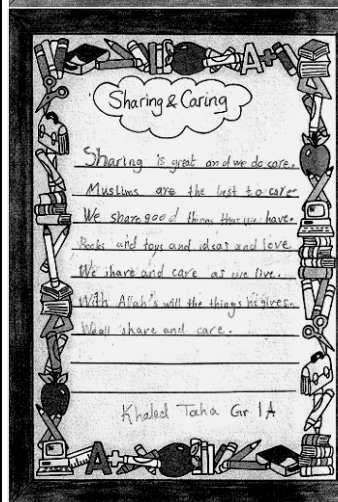 Sharing & Caring
Sharing is great and we do care.
Muslims are the best to care
We share good things that we have.
Books and toys and ideas and love
We share and care as we live.
With Allah's will the things he gives.
We all share and care.
Khaled Taha Gr 1A
A+
A+